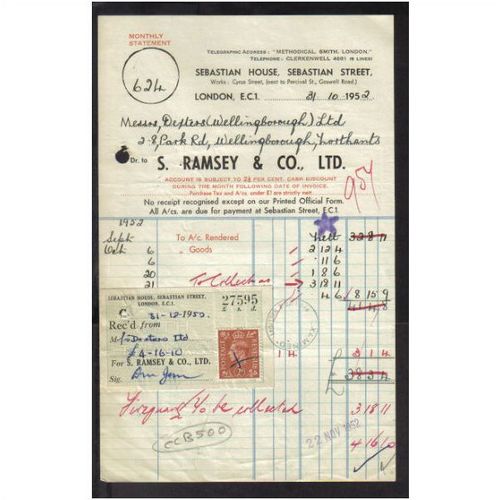 MONTHLY STATEMENT
TELEGRAPHIC ADDRESS: "METHODICAL, SMITH, LONDON."
TELEPHONE: CLERKENWELL 4001 (6 LINES)
624
SEBASTIAN HOUSE, SEBASTIAN STREET,
Works: Cyrus Street, (next to Percival St., Goswell Road.)
LONDON, E.C.1. 31 10 1952
Messrs, Dexters (Wellingborough) Ltd
2-8, Park Rd, Wellingborough, Northants
Dr. to S. RAMSEY & CO., LTD.
ACCOUNT IS SUBJECT TO 2½ PER CENT. CASH DISCOUNT
DURING THE MONTH FOLLOWING DATE OF INVOICE.
Purchase Tax and A/cs. under £1 are strictly nett.
No receipt recognised except on our Printed Official Form.
All A/cs. are due for payment at Sebastian Street, E.C.1
954
1952 Nett
Sept To A/c. Rendered
Oct 6 " Goods 2 12 4
6 1 8 6
20 1 8 6
21 3 18 11
SEBASTIAN HOUSE, SEBASTIAN STREET,
LONDON, E.C.1.
27595
31-12-1952.
Rec'd from
Dexters Ltd
£4-16-10
For S. RAMSEY & CO., LTD.
Sig.
POSTAGE REVENUE
1 4
£ 38 3 4
to be collected 3 18 11
CCB500
22 NOV 1952
4 16 10